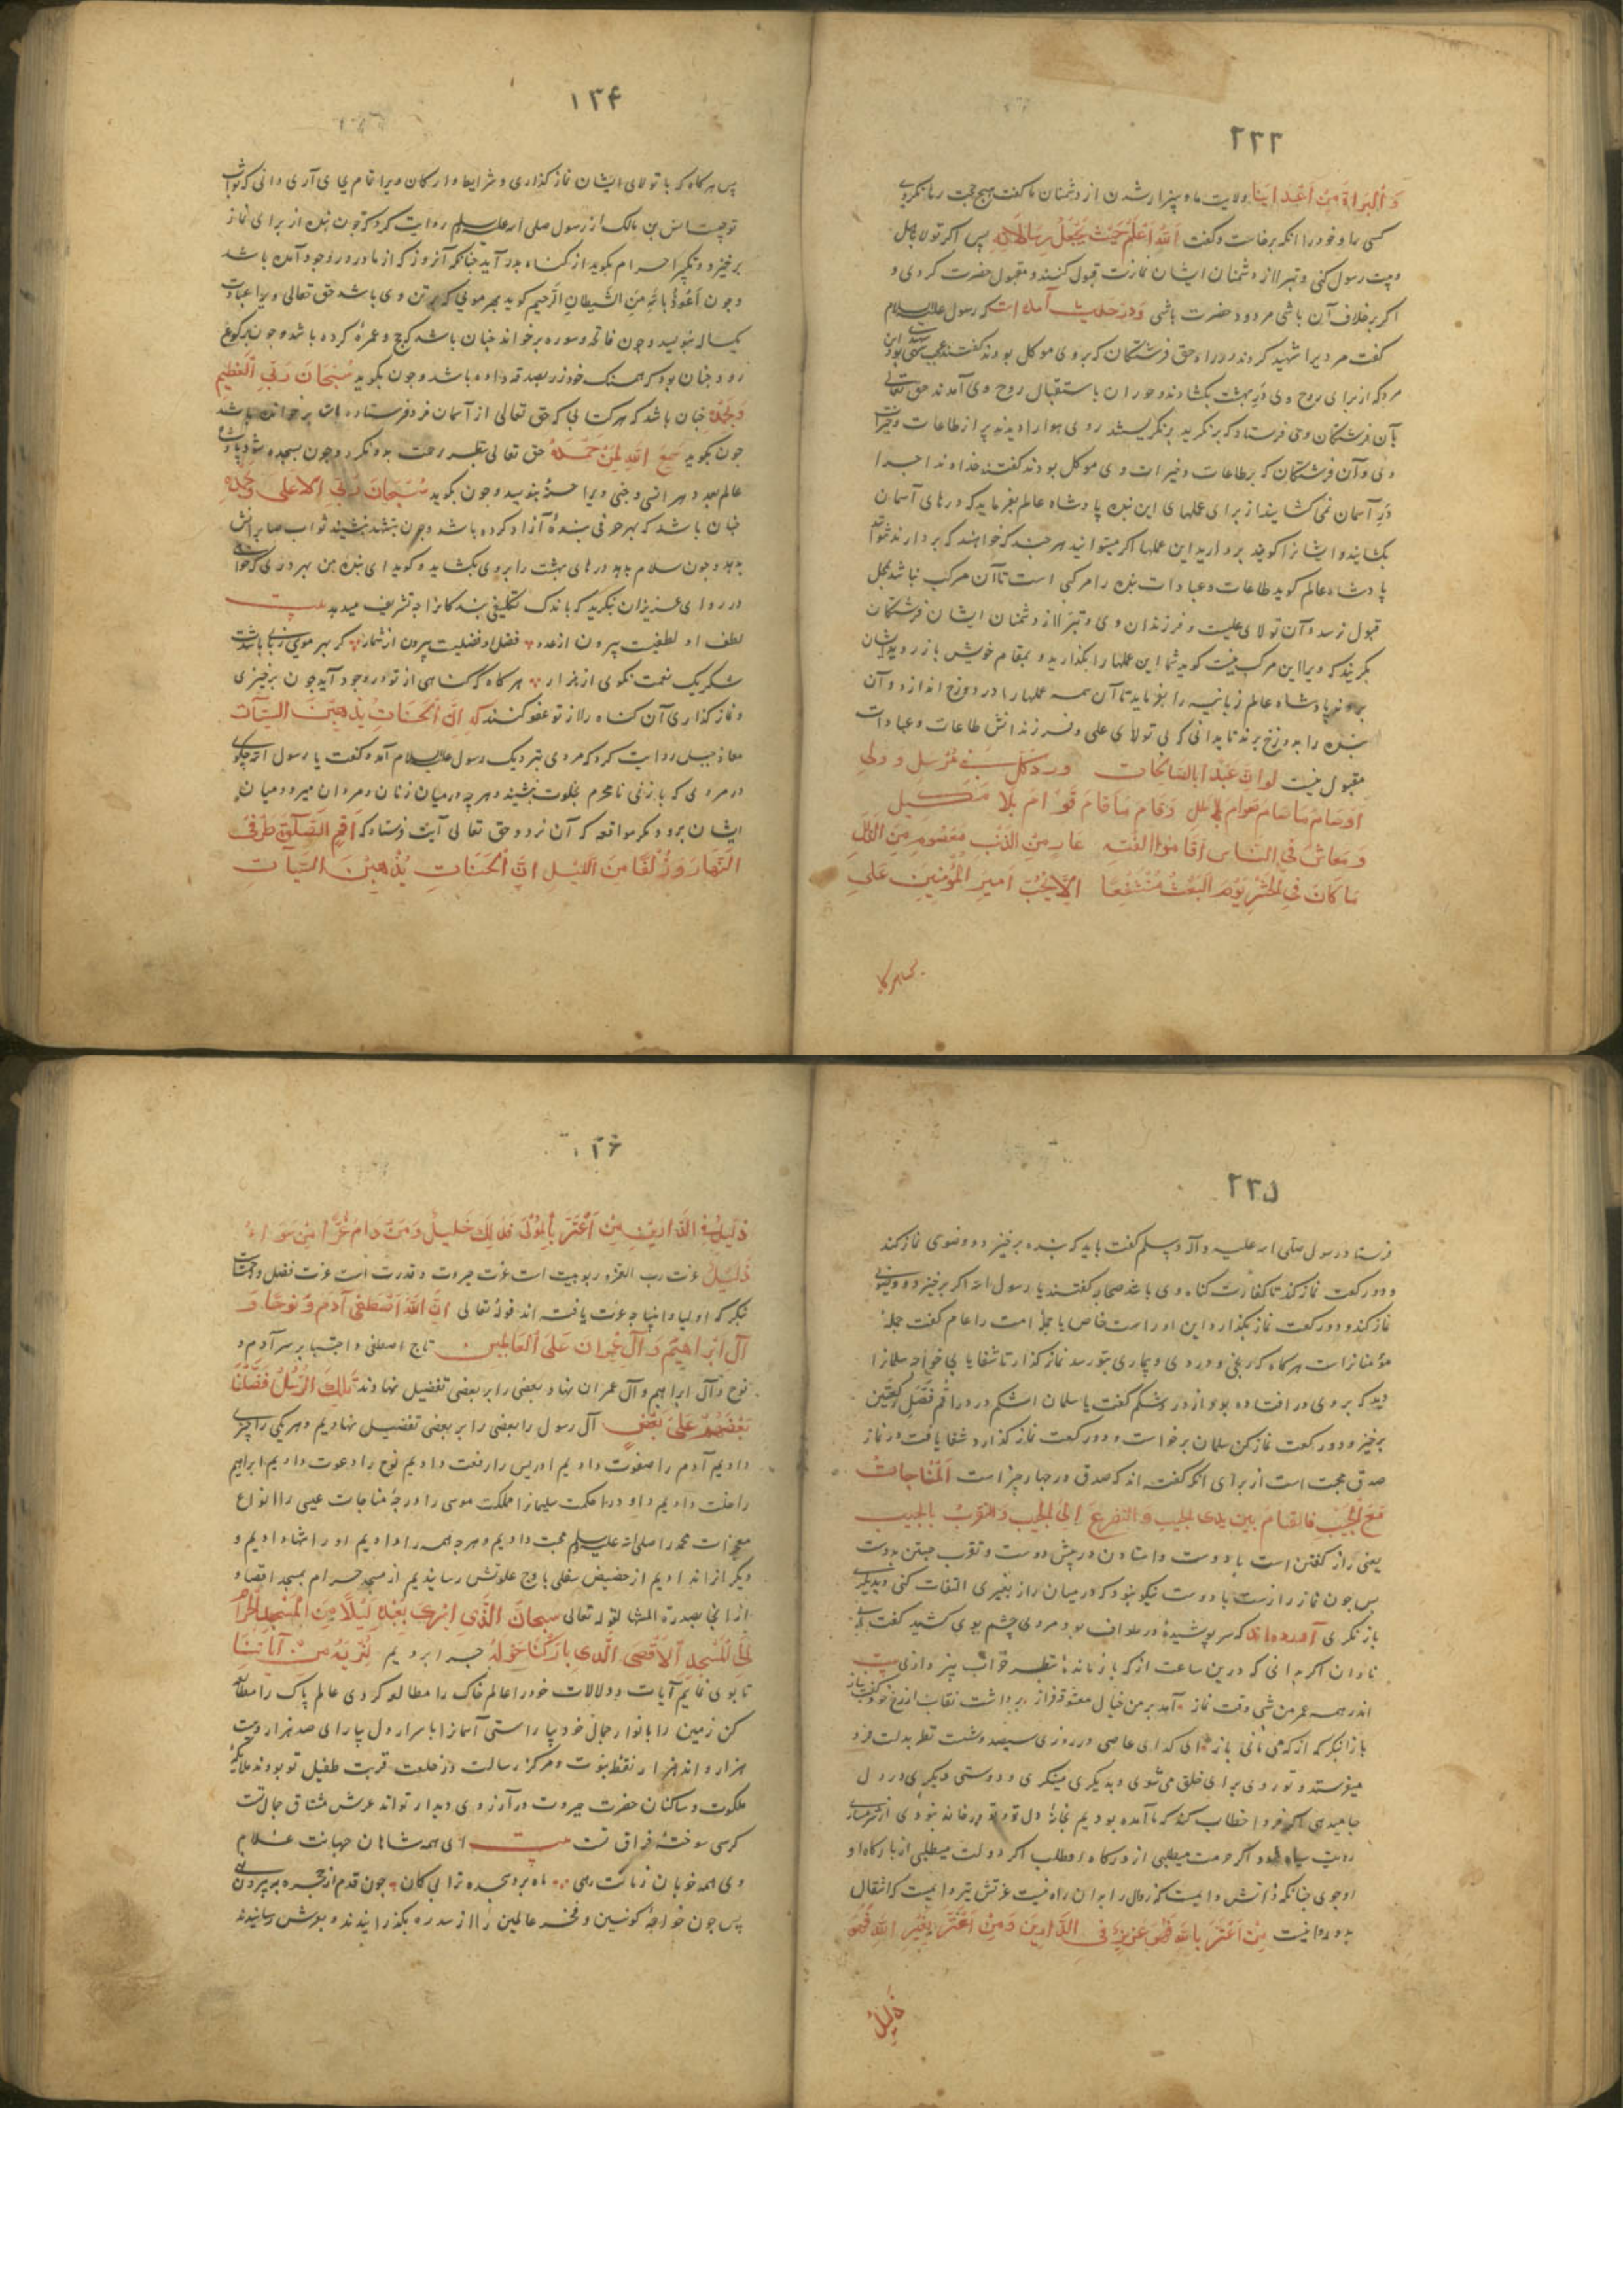 ۲۳۳
وَالبَرَاةَ مِنْ اَعْدَاینَا ولایت ما و بیزار شدن از دشمنان ما کفت هیچ حجت رها نکرد
کسی را و خود را انکه برخاست و کفت اَللهُ اَعْلَمُ حَیْثُ یَجْعَلُ رِسَالاَتِهِ پس اکر تولا باهل
و بیت رسول کنی و تبرا از دشمنان ایشان نمازت قبول کنند و مقبول حضرت کردی و
اکر برخلاف آن باشی مردود حضرت باشی وَدَر حَدیث آمده است که رسول علیه السلام
کفت مردیرا شهید کردند در راه حق فرشتکان که بر وی موکل بودند کفتند
مرد که از برای روح وی درِ بهشت بکشادند و حوران باستقبال روح وی آمدند حق تعالی
بآن فرشتکان وحی فرستاد که بنکرید بنکریستند روی هوا را دیدند پر از طاعات و خیرات
وی و آن فرشتکان که بر طاعات و خیرات وی موکل بودند کفتند خداوندا چرا
درِ آسمان نمی کشایند از برای عملهای این بنده پادشاه عالم بفرماید که درهای آسمان
بکشایند و ایشانرا کویند بردارید این عملها اکر میتوانید هر چند که خواهند که بردارند نتوانند
پادشاه عالم کوید طاعات و عبادات بنده را مرکبی است تا آن مرکب نباشد بمحل
قبول نرسد و آن تولای علیست و فرزندان وی و تبرّا از دشمنان ایشان فرشتکان
بکریند که ویرا این مرکب نیست کوید شما این عملها را بکذارید و بمقام خویش باز روید ایشان
بروند پادشاه عالم زبانیه را بفرماید تا آن همه عملها را در دوزخ اندازد و آن
بنده را بدوزخ برند تا بدانی که بی تولای علی و فرزندانش طاعات و عبادات
مقبول نیست لو ان عَبْدًا بالصَالِحَات وردَ کُل نَبِیٍ مُرْسَل و ولی
اوَصَامَ مَا صَامَ صَوّام بلا ملل وَقام مَا قامَ قَوَّامَ بِلا کَسَل
وَ مَعَاش فی النَاس عَار مِنَ الذَنْبِ مَعصُوم مِنَ الزَلَل
مَا کَانَ فی الحَشْرِ یَوْمَ البَعْثِ مُنْتَفِعًا اِلّا بِحُبِ اَمِیرِ المُؤْمِنِین عَلی
پس هرکاه
۱۳۴
پس هرکاه که با تولای ایشان نماز کذاری و شرایط و ارکان ویرا تمام بجای آری دانی که ثواب
تو چیست انس بن مالک از رسول صلی الله علیه وسلم روایت کرد که چون بنده از برای نماز
برخیزد و تکبیر احرام بکوید از کناه بدر آید چنانکه آنروز که از مادر در وجود آمده باشد
و چون اَعُوذُ بِاللهِ مِنَ الشَّیطَانِ الرَّحیم کوید بهر موئی که بر تن وی باشد حق تعالی ویرا عبادت
یکساله بنویسد و چون فاتحه و سوره برخواند چنان باشد که حج و عمره کرده باشد و چون برکوع
رود چنان بود که همسنک خود زر بصدقه داده باشد و چون بکوید سُبْحَانَ رَبِیَ اْلعَظِیمِ
وَبِحَمْدِهِ چنان باشد که هر کتابی که حق تعالی از آسمان فرو فرستاده است برخوانده باشد
چون بکوید سَمِعَ اللهِ لِمَنْ حَمِدَهُ حق تعالی بنظر رحمت بدو نکرد و چون بسجده شود
عالم بعدد هر انسی و جنی ویرا حسنهٔ بنویسد و چون بکوید سُبْحَانَ رَبِیَ الاَعْلی وَبِحَمْدِهِ
چنان باشد که بهر حرفی بندهٔ آزاد کرده باشد و چون بتشهد بنشیند ثواب صابرانش
بدهد و چون سلام بدهد درهای بهشت را بر وی بکشاید و کوید ای بنده من بهر دری که خواهی
در رو ای عزیزان بنکرید که باندک تکلیفی بندکانرا چه تشریف میدهد بیت
لطف او لطفیست بیرون از عدد فضل او فضلیست بیرون از شمار کر بهر مویی زبانی باشدت
شکر یک نعمت نکوی از هزار هر کاه که کناهی از تو در وجود آید چون برخیزی
و نماز کذاری آن کناه را از تو عفو کنند که اِنَّ اْلحَسَنَاتِ یُذْهِبْنَ السَّیّآت
معاذ جبل روایت کرد که مردی بنزدیک رسول علیه السلام آمد و کفت یا رسول الله چکوئی
در مردی که با زنی نامحرم بخلوت بنشیند و هر چه در میان زنان و مردان میرود میان
ایشان برود مکر مواقعه که آن نرود حق تعالی آیت فرستاد که اَقِمِ الصَّلوٰةَ طَرَفَیِ
النَّهَار وَزُلَفًا مِنَ اللَیْلِ اِنَّ اْلحَسَنَاتِ یُذْهِبْنَ السَّیّآت
۲۳۵
فرستاد رسول صلی الله علیه و آله وسلم کفت باید که بنده برخیزد و وضوی نماز کند
و دو رکعت نماز کند تا کفارت کناه وی باشد صحابه کفتند یا رسول الله اکر برخیزد و وضوی
نماز کند و دو رکعت نماز بکذارد این او راست خاص یا جمله امت را عام کفت جمله
مؤمنانراست هر کاه که رنجی و دردی و بیماری بتو رسد نماز کذار تا شفا یابی خواجه سلمانرا
دید که بر وی در افتاده بود از درد شکم کفت یا سلمان اشکم درد قُم فَصَلِ رَکْعَتَین
برخیز و دو رکعت نماز کن سلمان برخواست و دو رکعت نماز کذارد شفا یافت در نماز
صدق محبت است از برای انکه کفته اند که صدق در چهار چیز است اَلمُنَاجَاتُ
مَعَ الحَبِیْبِ فالقیَام بَیْنَ یَدی الحبیب وَ التَضَرع اِلیَ الحبیب وَالتقَرُبُ بالحَبیب
یعنی راز کفتن است با دوست و استادن در پیش دوست و تقرب جستن بدوست
پس چون نماز رازست با دوست نیکو نبود که در میان راز بغیری التفات کنی و بدیکری
باز نکری آورده اند که سر پوشیدهٔ در طواف بود مردی چشم بوی کشید کفت ای
نادان اکر بدانی که درین ساعت از که بازماندهٔ بنظر خواب نپردازی بیت
اندر همه عمر من شبی وقت نماز آمد بر من خیال معشوقه فراز برداشت نقاب از رخ خود
بازا بنکر که از که می مانی باز ای کدای عاصی در روزی سیصد و شصت نظر بدلت فرو
میفرستد و تو روی برای خلق می شوی و بدیکری مینکری و دوستی دیکری در دل
جا میدهی اکر فردا خطاب کند که ما آمده بودیم بخانهٔ دل تو و تو در خانه نبودی از شرمساری
رویت سیاه شود اکر حرمت میطلبی از درکاه او طلب اکر دولت میطلبی از بارکاه او
او جوی چنانکه ذاتش دایمست که زوال را بدان راه نیست عزتش نیز دایمست که انتقال
بدو روا نیست مِنْ اَعْتَزَ بِاللهِ فَهُوَ عَزیزُ فی الدَّارین وَمِنْ اَعْتَزَ بِغَیْرِ اللهِ فَهُوَ
ذلیلُ
۱۳۶
ذلیلُ فی الدَّارَیْنِ مِنْ اَعْتَزَ بِالمَوْلَی فَذَالِکَ جَلیلُ وَمَنْ دَامَ عِزًّا مِنْ سَوَاهُ
ذلیلُ عزت رب العزه ربوبیت است عزت جبروت و قدرت است عزت فضل و رحمتست
بنکر که اولیا و انبیا چه عزت یافته اند قوله تعالی اِنَّ اللهَ اصْطَفٰی آدَمَ وَ نوحًا وَ
آلِ اَبْرَاهِیْمَ وَ آلِ عِمْران عَلَی اْلعَالمِین تاج اصطفی و اجتبا بر سر آدم و
نوح و آل ابراهیم و آل عمران نهاد و بعضی را بر بعضی تفضیل نهادند تِلْکَ الرُّسُلُ فَضَّلْنَا
بَعْضَهُمْ عَلیَ بَعْضٍ آل رسول را بعضی را بر بعضی تفضیل نهادیم و هر یکی را چیزی
دادیم آدم را صفوت دادیم ادریس را رفعت دادیم نوح را دعوت دادیم ابراهیم
را خلت دادیم داود را حکمت سلیمانرا مملکت موسی را درجهٔ مناجات عیسی را انواع
معجزات محمد را صلی الله علیه وسلم محبت دادیم و هر چه همه را دادیم او را تنها دادیم و
دیکر از انه دادیم از حضیض سفلی باوج علوتش رسانیدیم از مسجد حرام بمسجد اقصا و
از اقصا بسدرة المنتها قوله تعالی سبحان الَّذی اَسْری بِعَبْدِهِ لَیْلًا مِنَ اْلمَسْجِدِ الحَرَامِ
اِلَی اْلمَسْجِدِ اْلاَقْصَی الَّذی بَارَکْنَا حَوْلَهُ چرا بردیم لِنُرِیَهُ مِنْ آیَاتِنَا
تا بوی نماییم آیات و دلالات خود را عالم خاک را مطالعه کردی عالم پاک را مطالعه
کن زمین را بانوار جمال خود بیاراستی آسمانرا باسرار دل بیارای صد هزار و بیست
هزار و اند هزار نقطهٔ نبوت و مرکز رسالت در خلعت قربت طفیل تو بودند ملائکهٔ
ملکوت و ساکنان حضرت جبروت در آرزوی دیدار تواند عرش مشتاق جمال تست
کرسی سوختهٔ فراق تست بیت ای همه شاهان جهانت غلام
وی همه خوبان زمانت رهی ماه برد سجده ترا بی کمان چون قدم از حجره به بیرون نهی
پس چون خواجهٔ کونین و مفخر عالمین را از سدره بکذرانیدند و بعرش رسانیدند